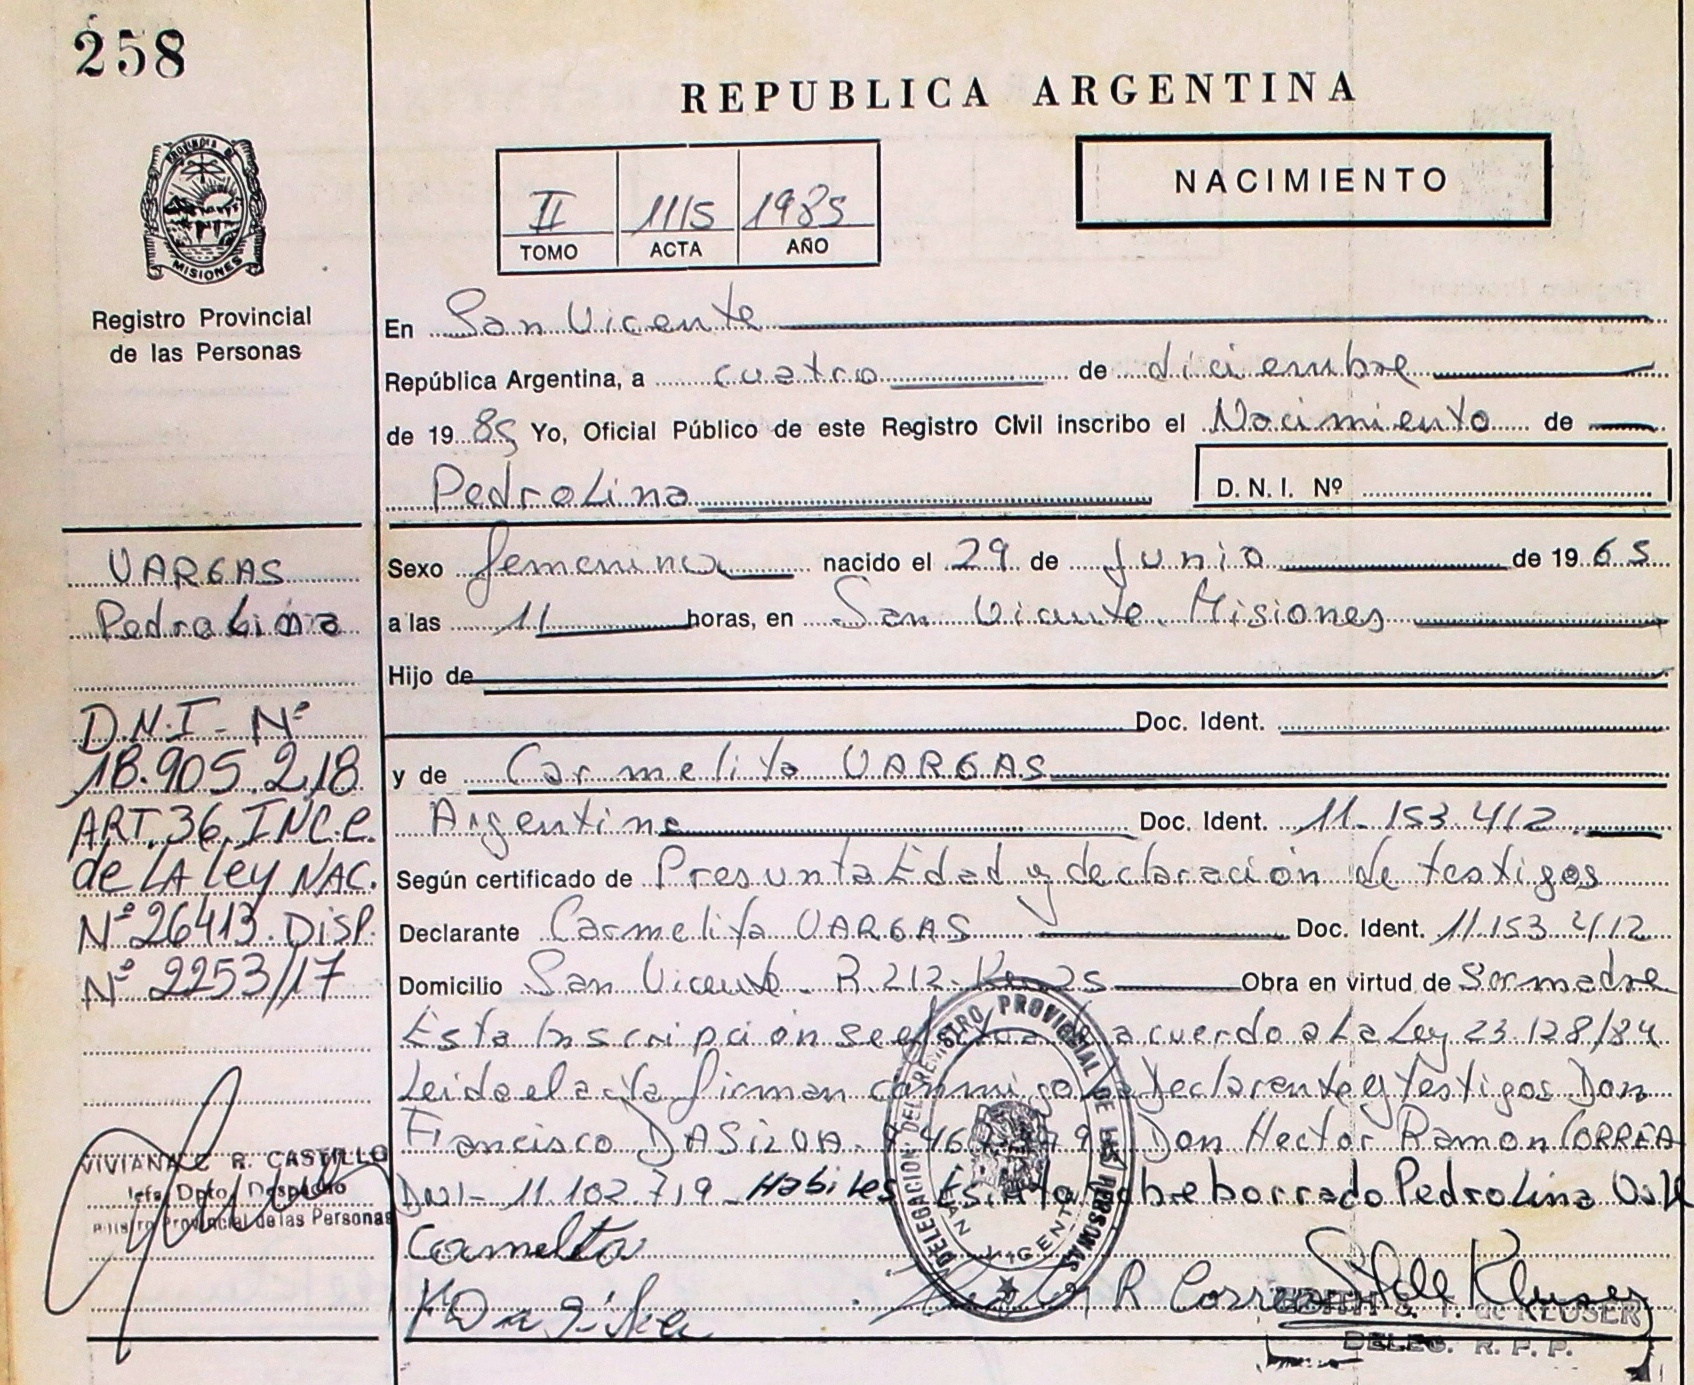 258
REPUBLICA ARGENTINA
NACIMIENTO
II 1115 1985
TOMO ACTA AÑO
PROVINCIA DE
MISIONES
Registro Provincial
de las Personas
En San Vicente
República Argentina, a cuatro de diciembre
de 1985 Yo, Oficial Público de este Registro Civil inscribo el Nacimiento de
PedroLina
D. N. I. Nº
VARGAS
PedroLina
D.N.I - Nº
18.905.218
ART. 36. INC.C.
de LA Ley NAC.
Nº 26413. DISP.
Nº 2253/17
VIVIANA R. CASTILLO
Jefa Dpto. Despacho
Registro Provincial de las Personas
Sexo femenino nacido el 29 de Junio de 1965
a las 11 horas, en San Vicente. Misiones
Hijo de
Doc. Ident.
y de Carmelita VARGAS
Argentina Doc. Ident. 11.153.412
Según certificado de Presunta Edad y declaración de testigos
Declarante Carmelita VARGAS Doc. Ident. 11.153.412
Domicilio San Vicente. R. 212. Obra en virtud de Ser madre
Esta Inscripción se efectua acuerdo a La Ley 23.128/84
Leida el acta firman conmigo La Declarante y testigos Don
Francisco DASILVA. Don Hector Ramon CORREA
DNI- 11.102.719 Habiles sobreborrado PedroLina Vale
DELEGACION DEL REGISTRO PROVINCIAL DE LAS PERSONAS
SAN VICENTE
R Correa S de Kluser
G. KLUSER
DELEG. R. P. P.